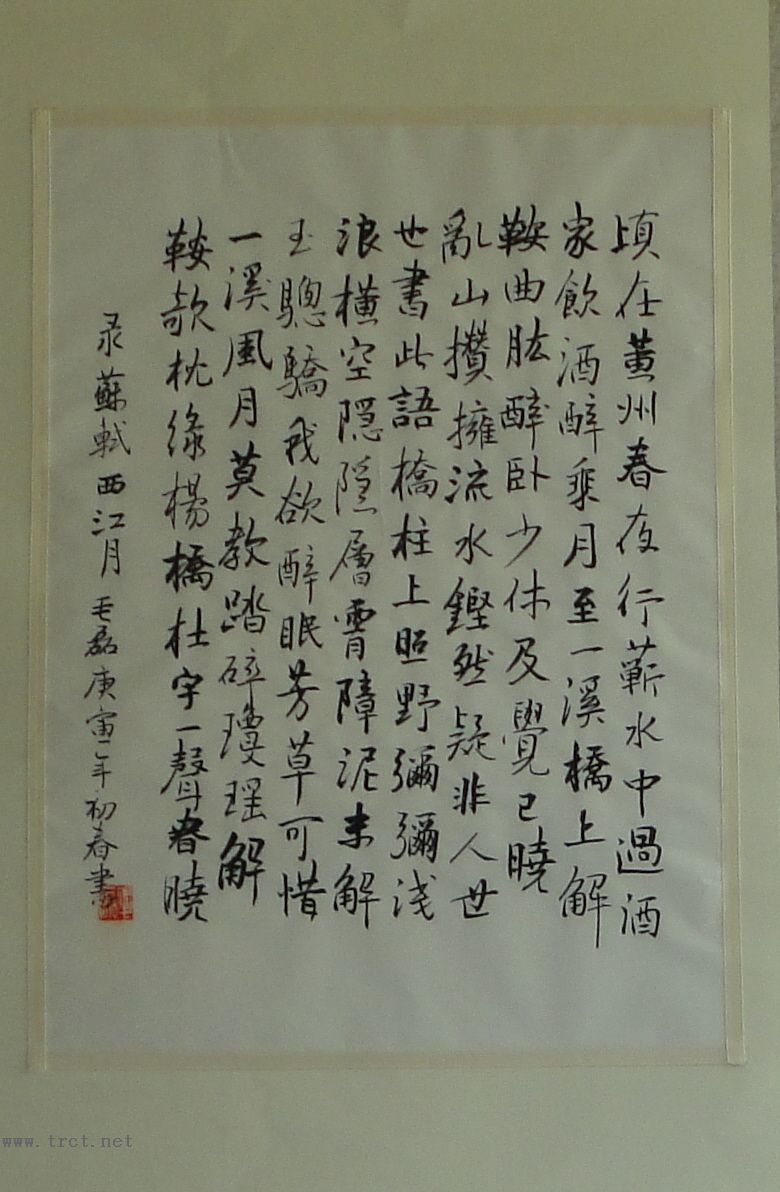 頃在黄州春夜行蘄水中過酒
家飲酒醉乘月至一溪橋上解
鞍曲肱醉卧少休及覺已曉
亂山攢擁流水鏗然疑非人世
也書此語橋柱上照野彌彌淺
浪橫空隱隱層霄障泥未解
玉驄驕我欲醉眠芳草可惜
一溪風月莫教踏碎瓊瑶解
鞍欹枕綠楊橋杜宇一聲春曉
录蘇軾西江月 毛磊庚寅年初春書
www.trct.net